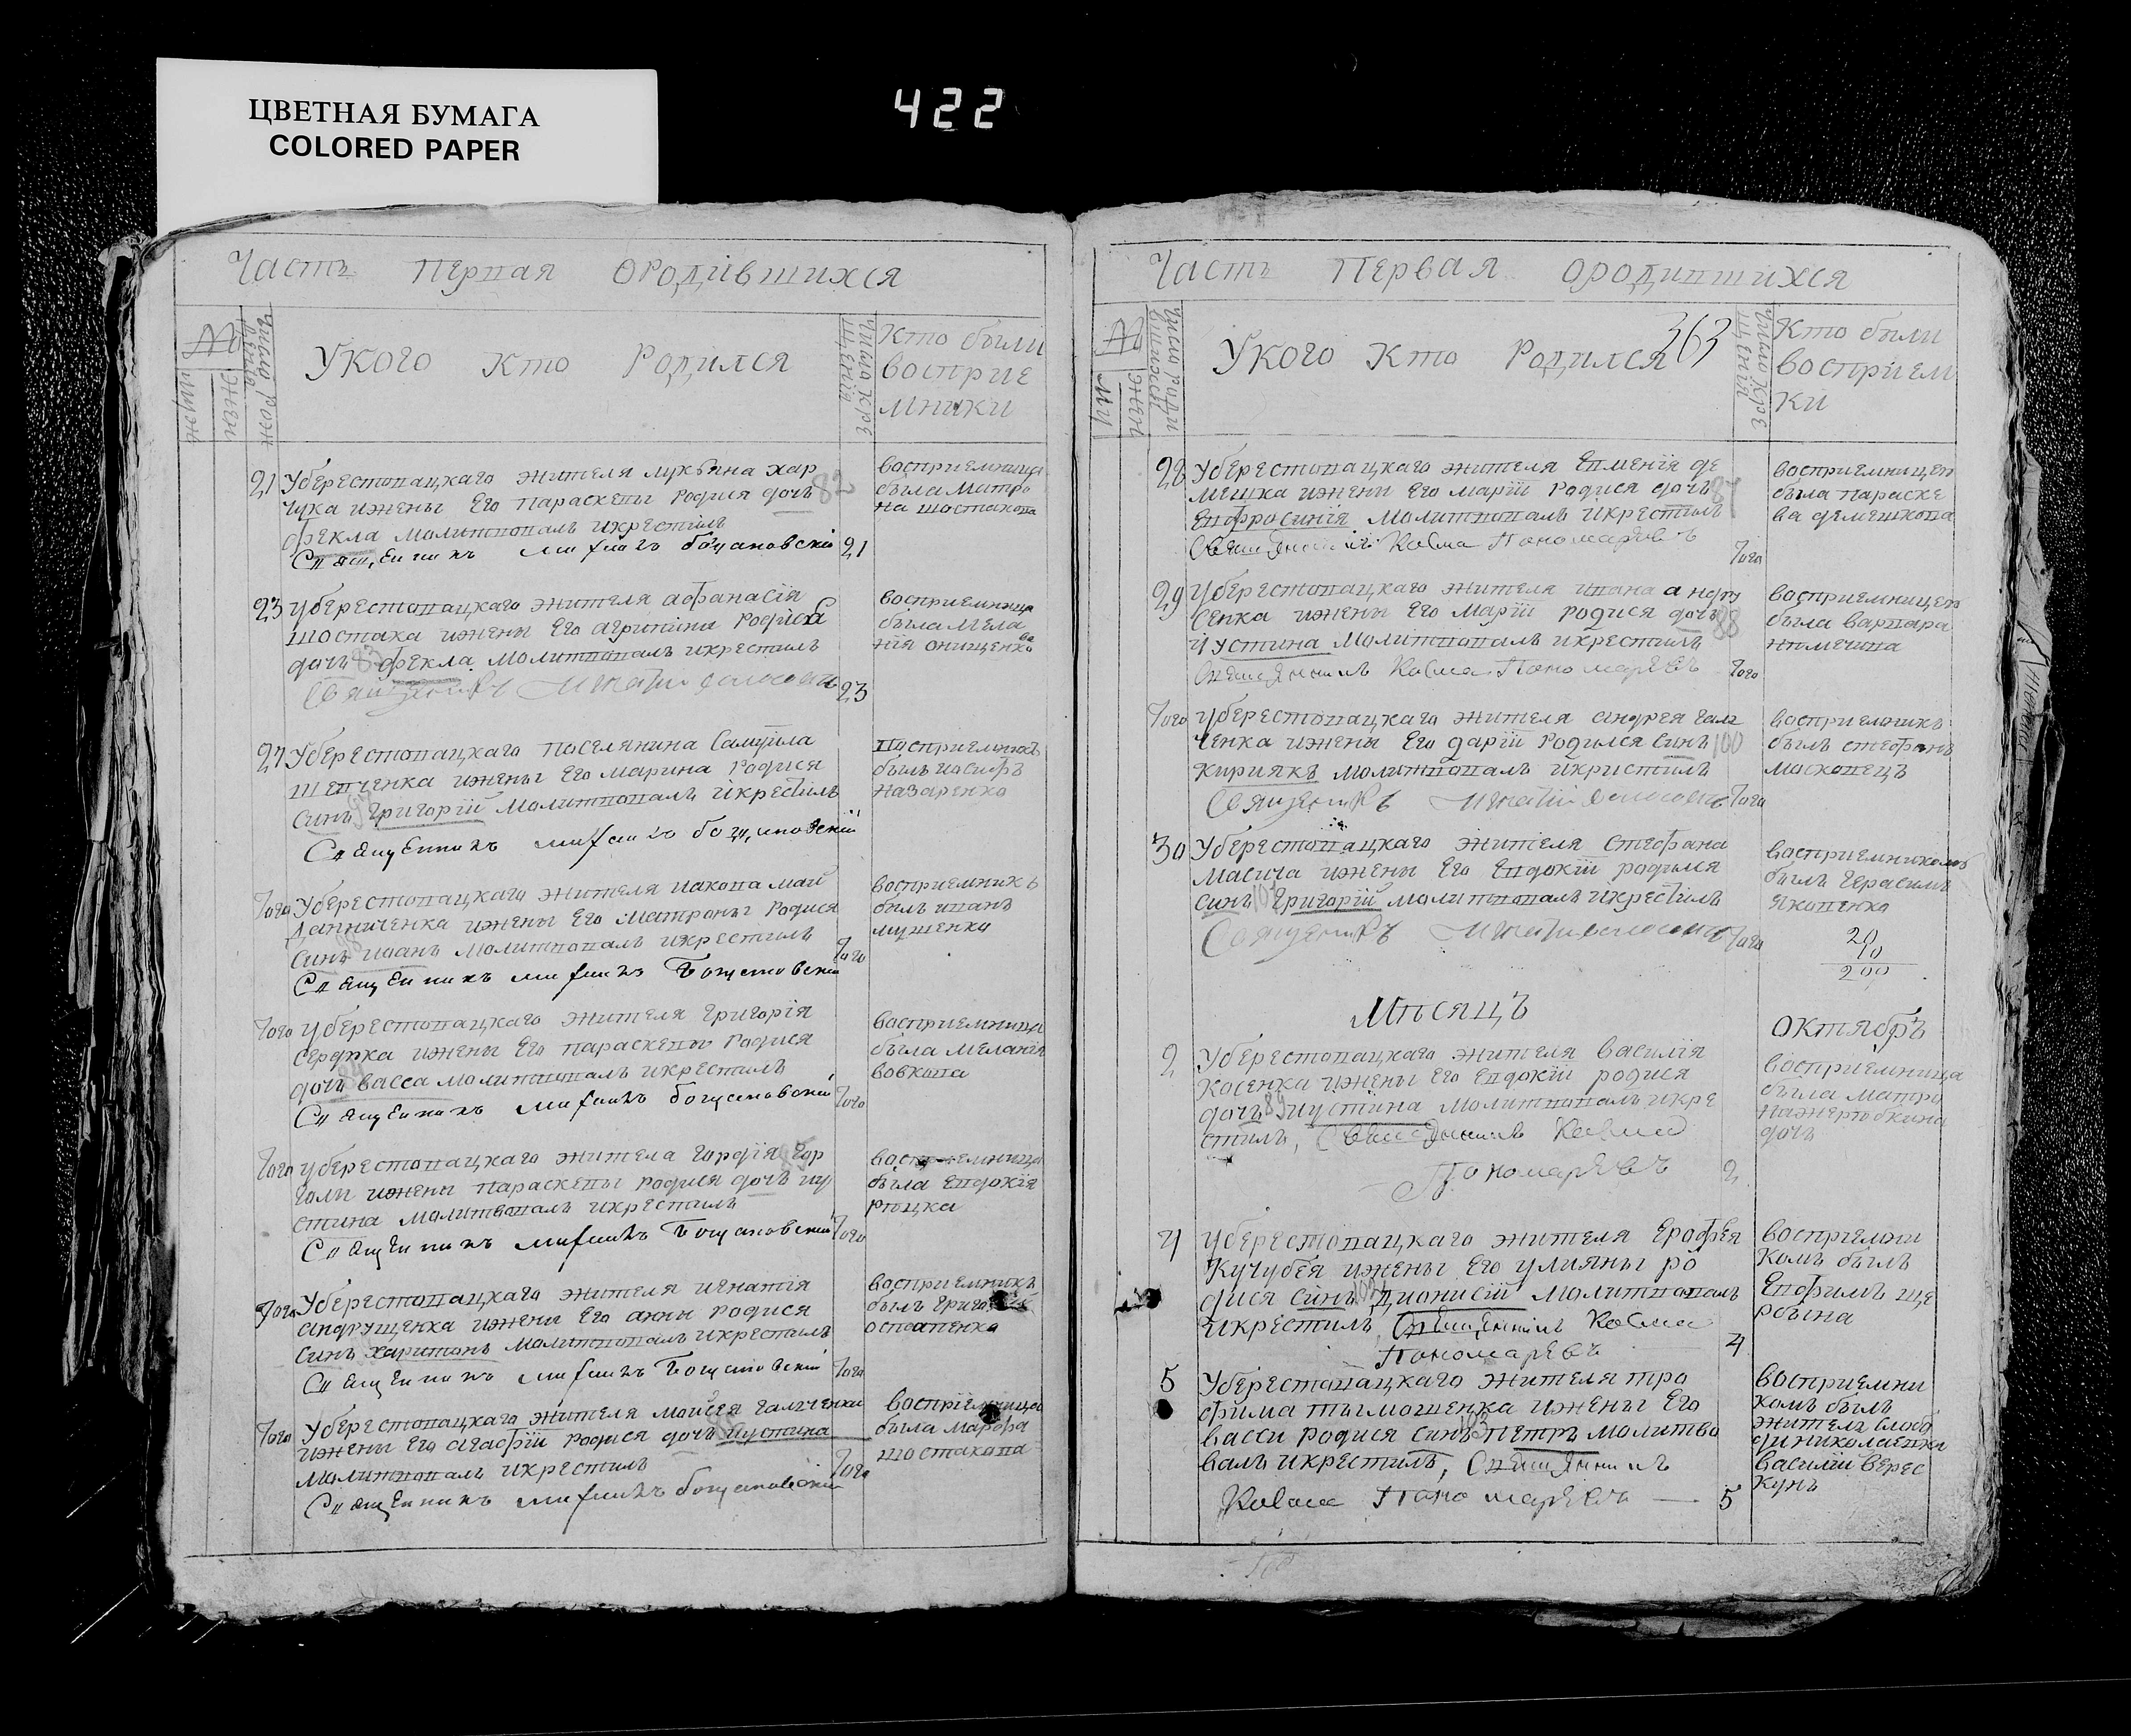 ЦВЕТНАЯ БУМАГА
COLORED PAPER
422
Часть первая ородившихся
№
мужеск
женск
Укого кто родился
Кто были
восприе
мники
21 Уберестовацкаго жителя лукьяна хар
чука ижены его параскевы родися дочь 82
фекла молитвовалъ икрестилъ
Священникъ 21
восприемница
была Матро
на шостакова
23 Уберестовацкаго жителя афанасія
шостака ижены его агрипины родися
дочь 83 фекла молитвовалъ икрестилъ
Священникъ 23
восприемница
была Мела
нія онищенкова
27 Уберестовацкаго поселянина Самуила
шевченка ижены его марина родися
синъ григорій молитвовалъ икрестилъ
Священникъ
восприемникъ
былъ иосифъ
назаренко
Того Уберестовацкаго жителя иакова май
данниченка ижены его матроны родися
синъ иоанъ молитвовалъ икрестилъ
Священникъ Того
восприемникъ
былъ иванъ
мушенко
Того Уберестовацкаго жителя григорія
сердюка ижены его параскевы родися
дочь васса молитвовалъ икрестилъ
Священникъ Того
восприемница
была меланія
вовкова
Того Уберестовацкаго жителя гордія гор
голи ижены параскевы родися дочь иу
стина молитвовалъ икрестилъ
Священникъ Того
восприемница
была евдокія
Того Уберестовацкаго жителя игнатія
андрущенка ижены его анны родися
синъ харитонъ молитвовалъ икрестилъ
Священникъ Того
восприемникъ
былъ
остапенко
Того Уберестовацкаго жителя моисея галченка
ижены его агафіи родися дочь иустина
молитвовалъ икрестилъ Того
Священникъ
восприемница
была марфа
шостакова
Часть первая ородившихся
363
№
женск
Укого кто родился
Кто были
восприем
ки
28 Уберестовацкаго жителя евменія де
мешка ижены его маріи родися дочь 87
евфросинія молитвовалъ икрестилъ
Священникъ Косма Пономаревъ Того
восприемницею
была параске
ва демешкова
29 Уберестовацкаго жителя ивана андру
сенка ижены его маріи родися дочь 88
иустина молитвовалъ икрестилъ
Священникъ Косма Пономаревъ Того
восприемницею
была варвара
Того Уберестовацкаго жителя андрея гал
ченка ижены его даріи родился синъ 100
кириякъ молитвовалъ икристилъ
Священникъ Того
восприемникъ
былъ стефанъ
московецъ
30 Уберестовацкаго жителя стефана
масича ижены его евдокіи родился
синъ григорій молитвовалъ икрестилъ
Священникъ Того
восприемникомъ
былъ герасимъ
яковенко
20
10
200
Мѣсяцъ октябръ
2 Уберестовацкаго жителя василія
косенка ижены его евдокіи родися
дочь 89 иустина молитвовалъ икре
стилъ, Священникъ Косма
Пономаревъ 2
восприемница
была матро
дочь
4 Уберестовацкаго жителя ерофея
кучубея ижены его улияны ро
дися синъ дионисій молитвовалъ
икрестилъ Священникъ Косма
Пономаревъ 4
восприемни
комъ былъ
евфимъ ще
рбина
5 Уберестовацкаго жителя тро
фима тымошенка ижены его
васси родися синъ 103 петръ молитво
валъ икрестилъ, Священникъ
Косма Пономаревъ 5
восприемни
комъ былъ
житель слобо
ди николаевки
василій верес
кунъ